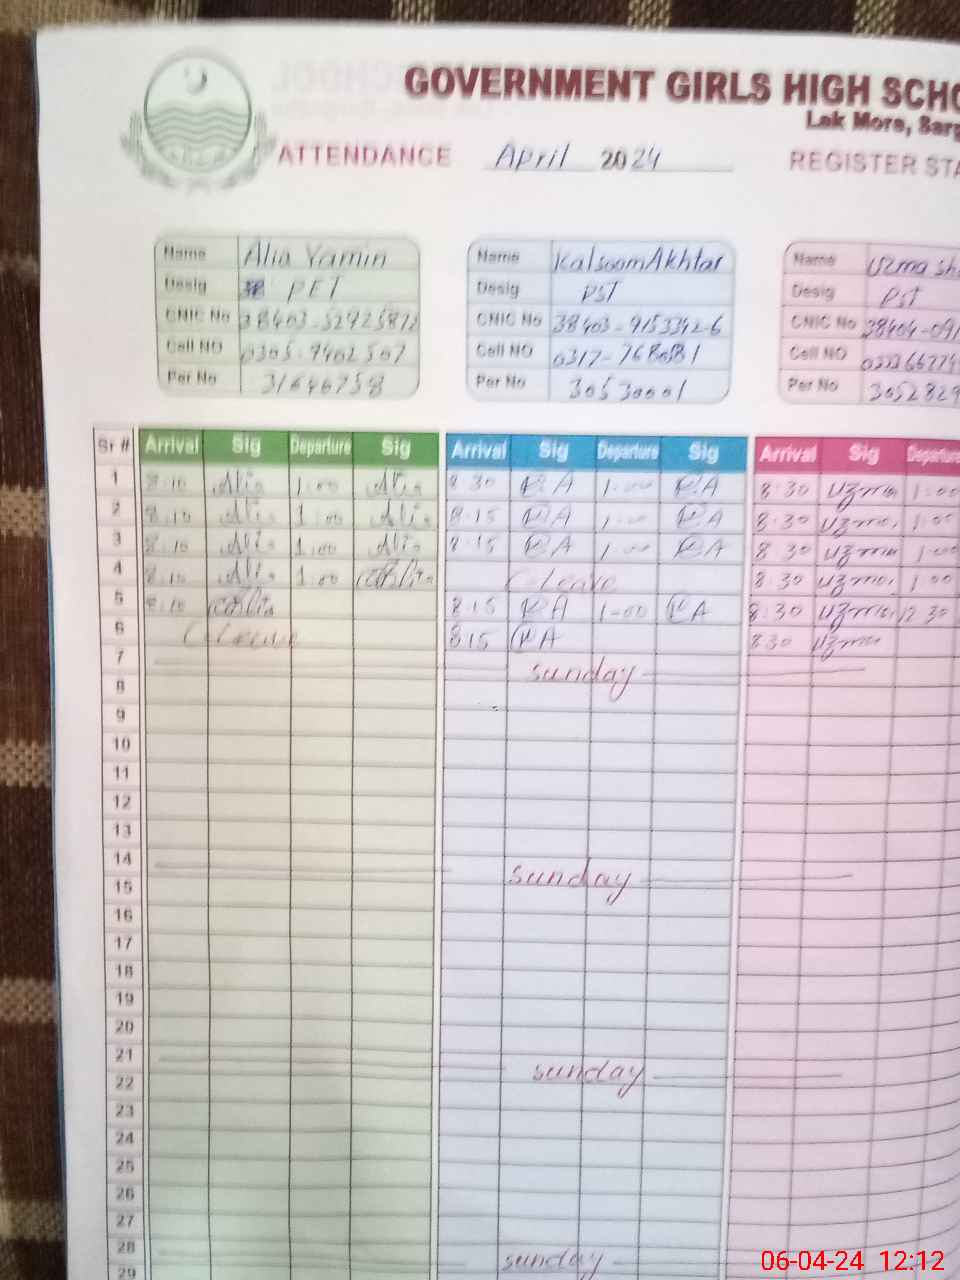 GOVERNMENT GIRLS HIGH SCHO
Lak More, Sarg
ATTENDANCE April 2024 REGISTER STA
Name Alia Yamin
Desig PET
CNIC No
Cell NO 0305-9402507
Per No 31646758
Name Kalsoom Akhtar
Desig PST
CNIC No 38403-9153342-6
Cell NO
Per No 30530001
Name Uzma Sh
Desig PST
CNIC No 38404-091
Cell NO
Per No 3052829
Sr # Arrival Sig Departure Sig Arrival Sig Departure Sig Arrival Sig Departure
1 8:10 Alia 1:00 Alia 8:30 KA 1:00 KA 8:30 uzma 1:00
2 8:10 Alia 1:00 Alia 8:15 KA 1:00 KA 8:30 uzma 1:00
3 8:10 Alia 1:00 Alia 8:15 KA 1:00 KA 8:30 uzma 1:00
4 8:10 Alia 1:00 Alia C-Leave 8:30 uzma 1:00
5 8:10 Alia 8:15 KA 1-00 KA 8:30 uzma 12:30
6 C-Leave 8:15 KA 830 uzma
7 sunday
8
9
10
11
12
13
14 sunday
15
16
17
18
19
20
21 sunday
22
23
24
25
26
27
28 sunday
29
06-04-24 12:12